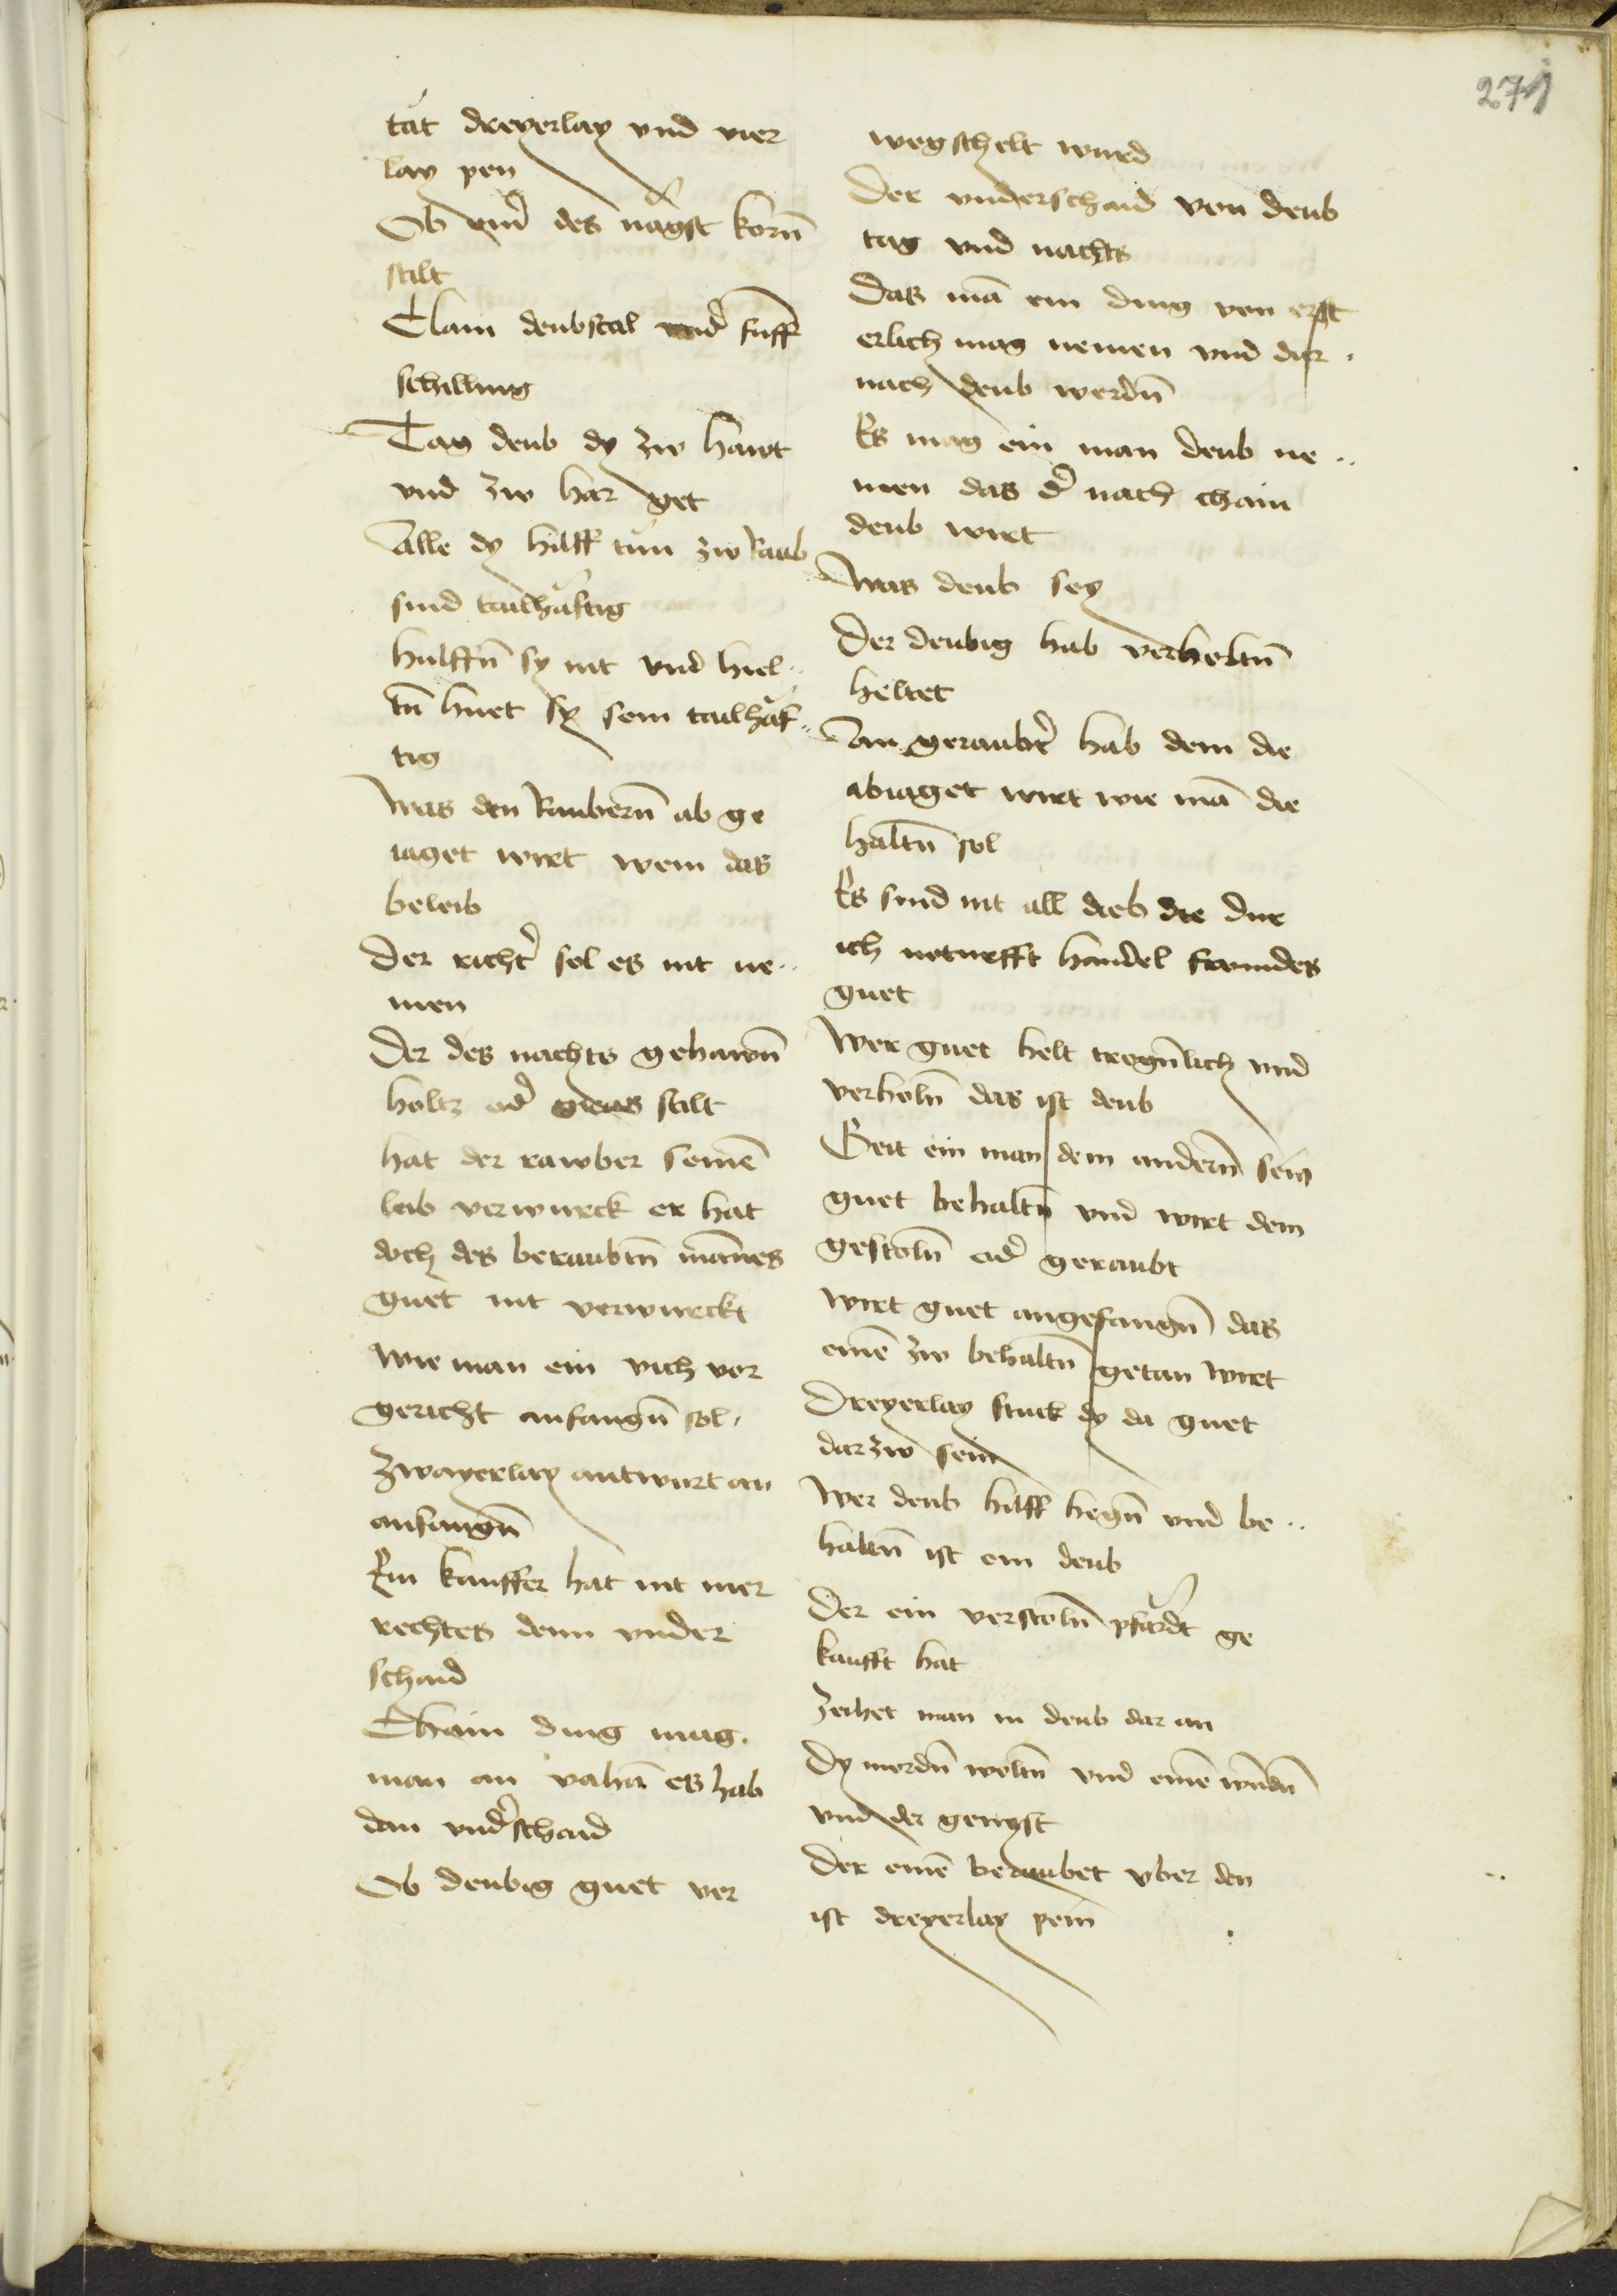 271
tät dreyerlay vnd vier
lay pen
Ob einẻ des nagst korn̄
stilt
Clain deubstal vndẻ funff
schilling
Tag deub dy zw hawt
vnd zw har get
Alle dy hilff tün zw Raub
sind tailhäftig
hulffn̄ sy nit vnd hiel¨
tn̄ huet sy sein tailhäf¨
tig
Was den Raubern̄ ab ge
iaget wirt wem das
beleib
Der richtẻ sol es nit ne¨
men
Der des nachts gehawn̄
holtz odẻ gras stilt
hat der rawber seinē
leib verwurck er hat
doch des beraubtn̄ mānes
guet nit verwurckt
Wie man ein vich vor
gericht anfangn̄ sol
Zwayerlay antwurt an
anfangn̄
Ein kauffer hat nit mer
rechtes denn vnder
schaid
Chain ding mag
man an vahā es hab
dan vndẻschaid
Ob deubig guet ver
wegschelt wurd
Der vnderschaid von deub
tag vnd nachts
Das mā ein ding von erst
erlich mag nemen vnd dar
nach deub werdn̄
Es mag ein man deub ne¨
men das dẻ nach chain
deub wirt
Was deub sey
Der deubig hab verholtn̄
heltet
An geraubtẻ hab dem die
abiaget wirt wie mā die
haltn̄ sol
Es sind nit all dieb die dur
ich noturfft handel frömdes
guet
Wer guet helt tregn̄lich vnd
verholn̄ das ist deub
Geit ein man dem andern̄ sein
guet behaltn̄ vnd wirt dem
gestoln̄ odẻ geraubt
Wirt guet angefangn̄ das
einē zw behaltn̄ getan wirt
Dreyerlay stuck dy da guet
dar zw sein
Wer deub hilff hegn̄ vnd be¨
haltn̄ ist ein deub
Der ein verstoln̄ pfärdt ge
kaufft hat
Zeihet man in deub dar an
Dy mordn̄ woltn̄ vnd einē wndn̄
vnd der genyst
Der einē beraubet vber den
ist dreyerlay pein